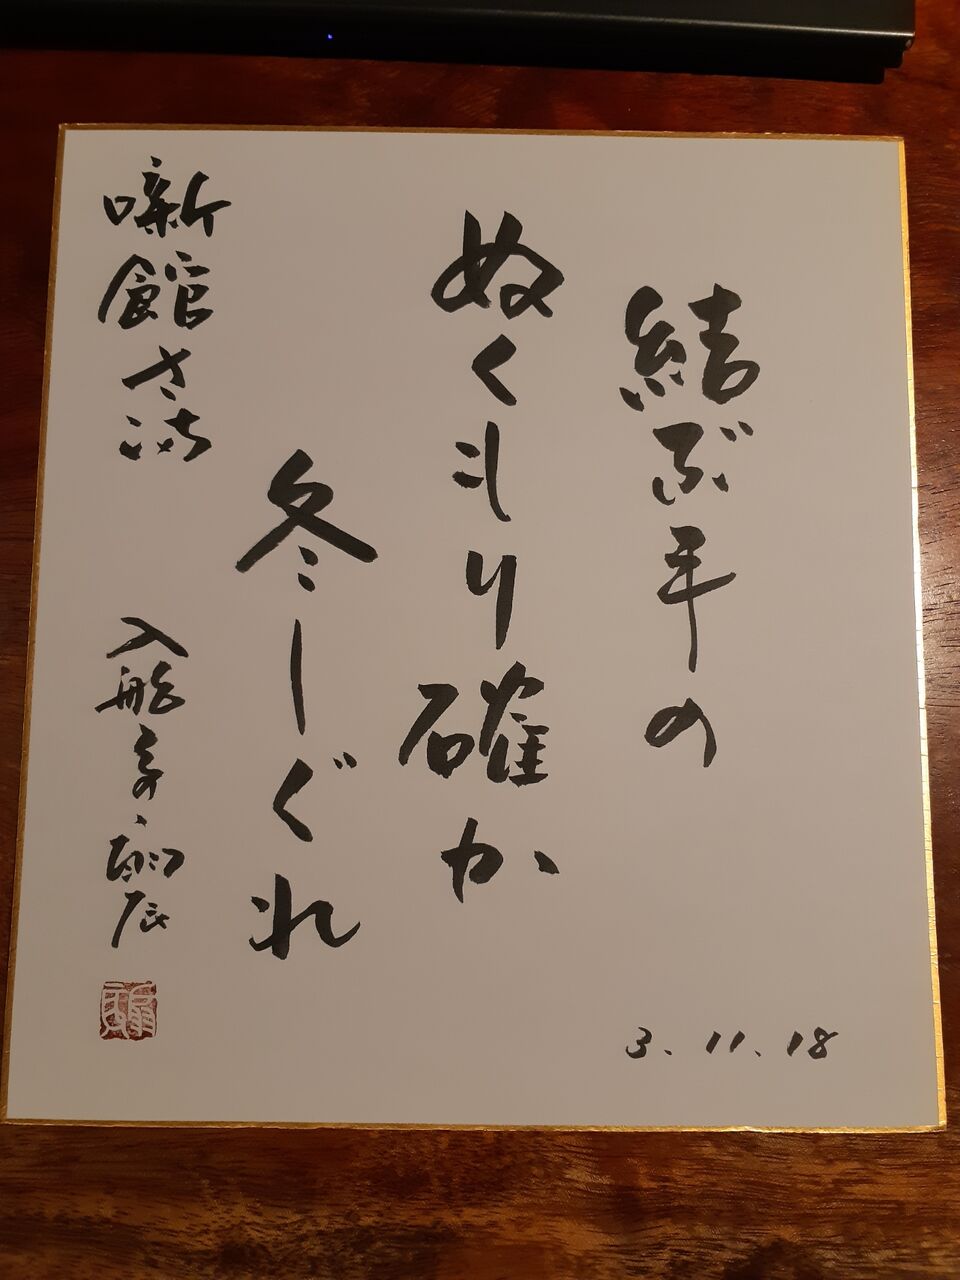 結ぶ手の
ぬくもり確か
冬しぐれ
噺館さ満
入船亭扇辰
3.11.18